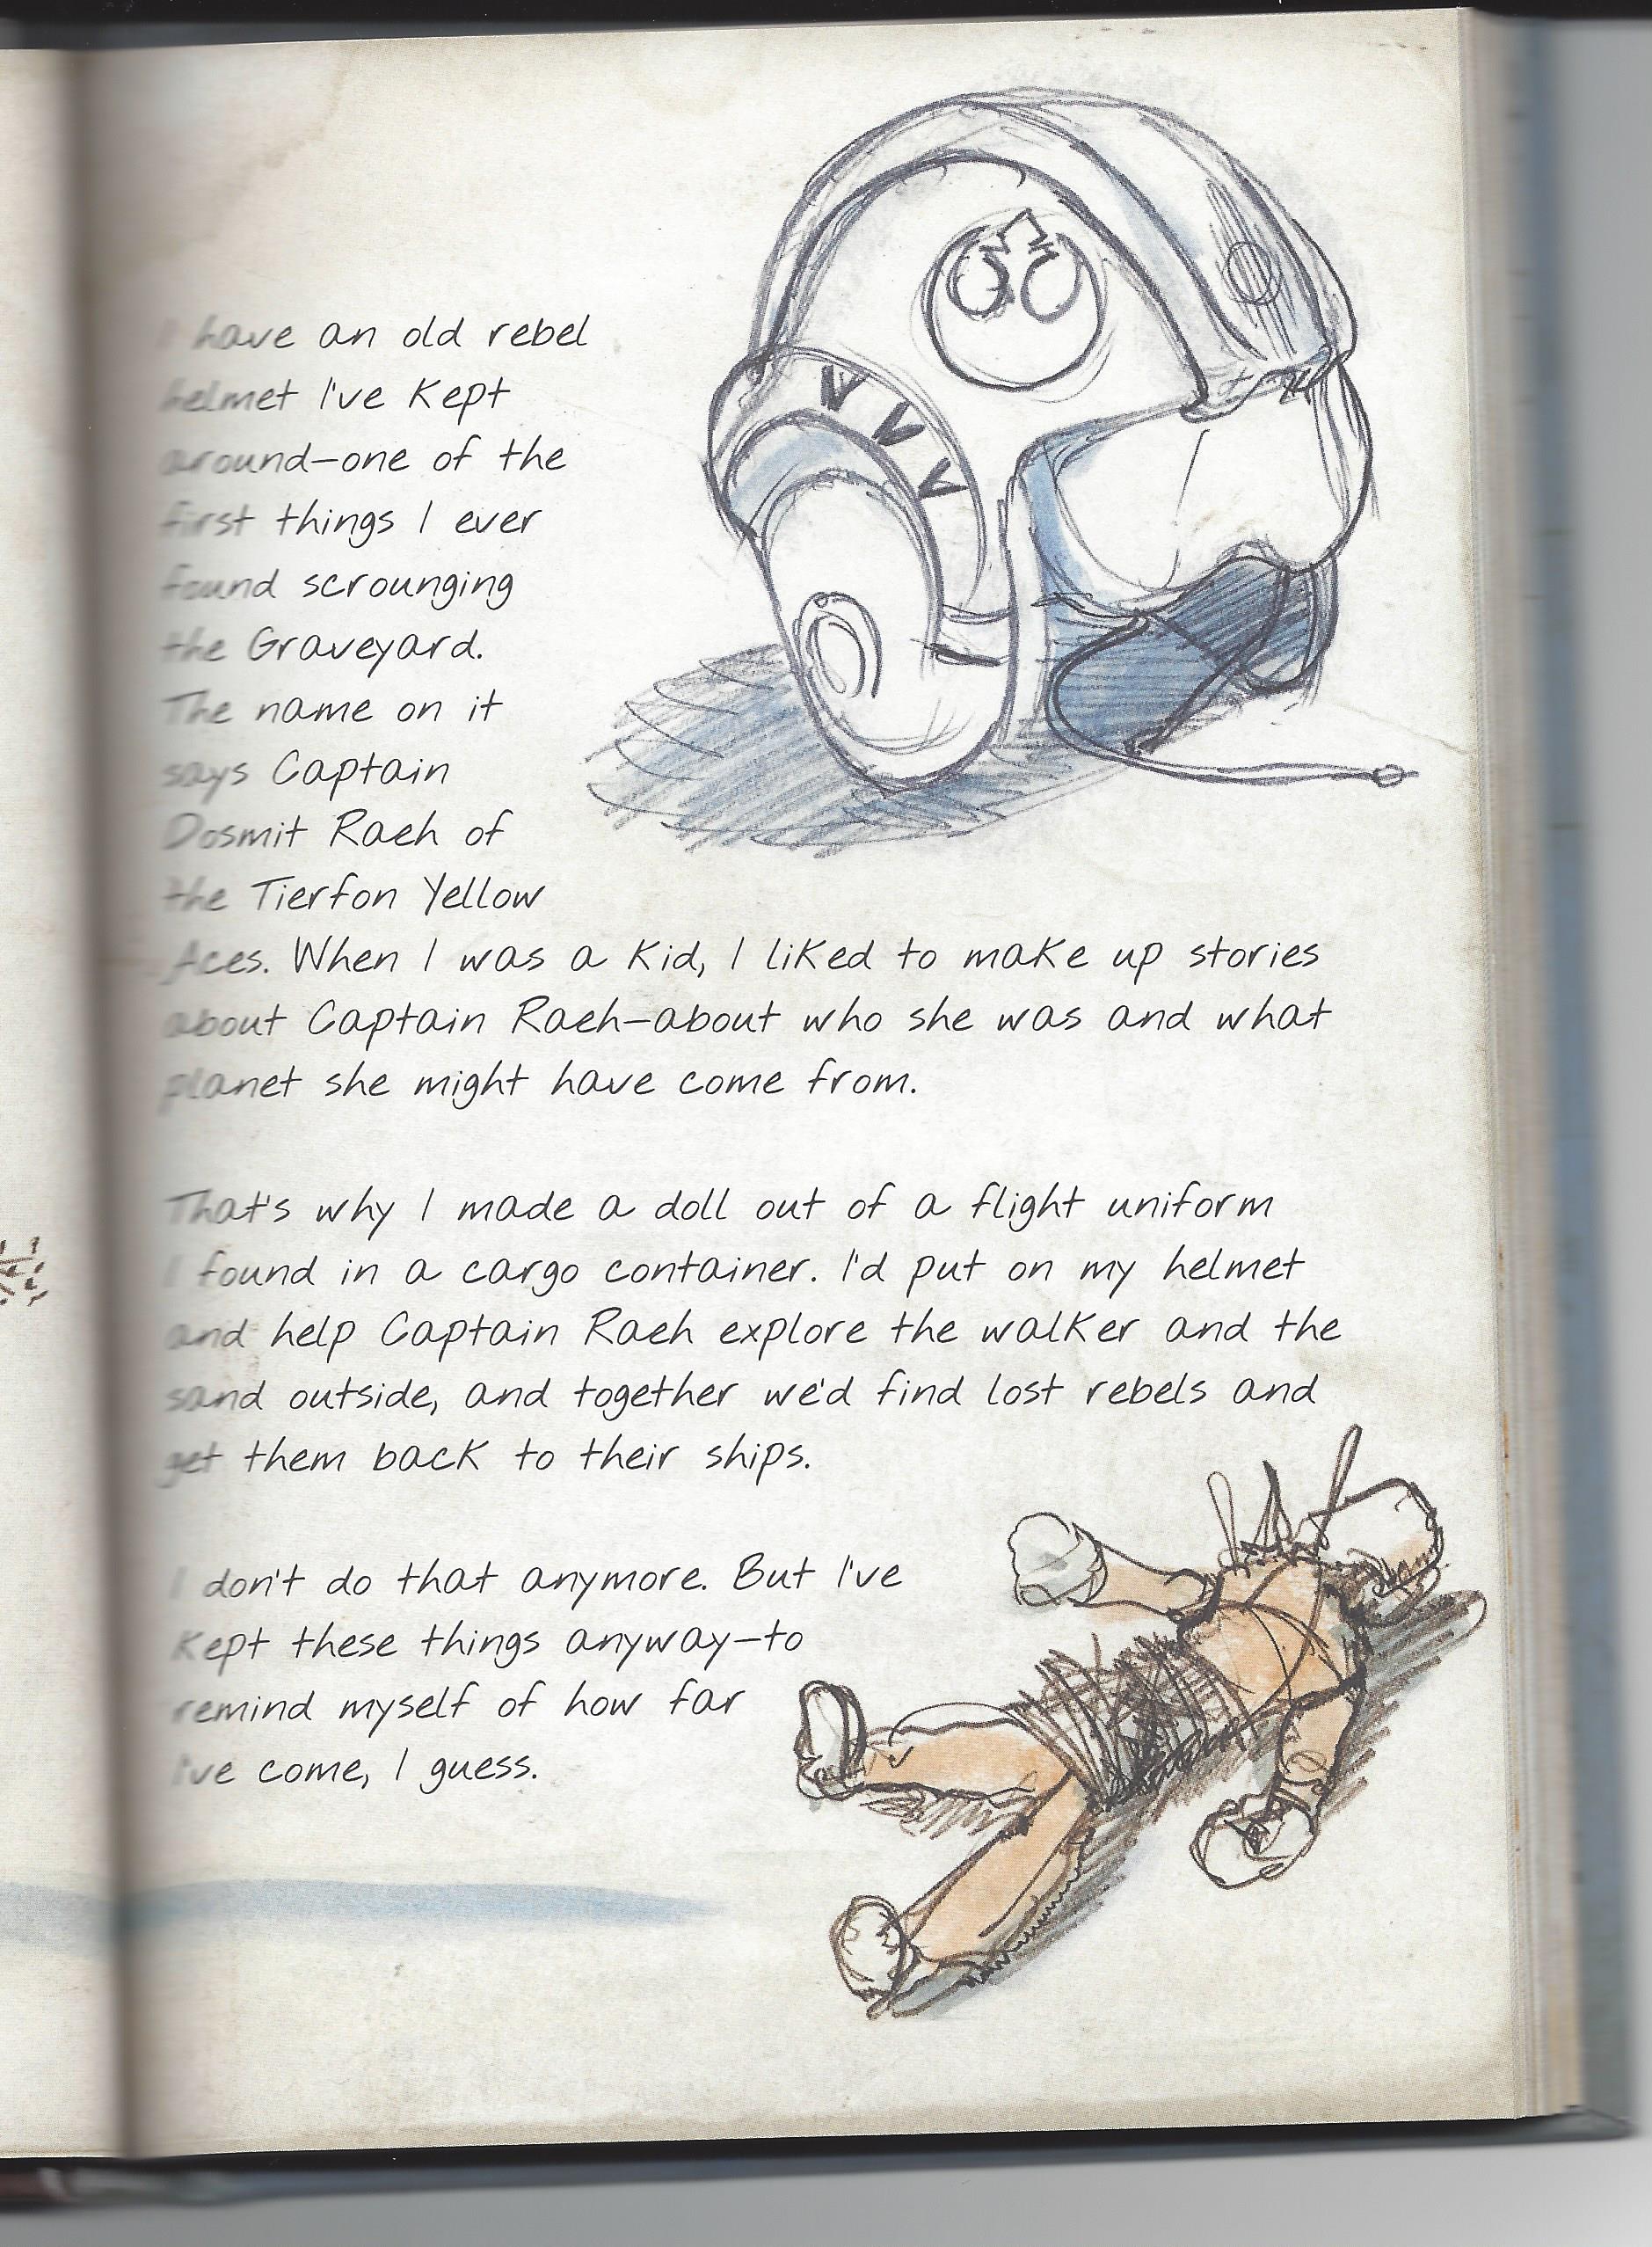 I have an old rebel
helmet I've kept
around—one of the
first things I ever
found scrounging
the Graveyard.
The name on it
says Captain
Dosmit Raeh of
the Tierfon Yellow
Aces. When I was a kid, I liked to make up stories
about Captain Raeh—about who she was and what
planet she might have come from.
That's why I made a doll out of a flight uniform
I found in a cargo container. I'd put on my helmet
and help Captain Raeh explore the walker and the
sand outside, and together we'd find lost rebels and
get them back to their ships.
I don't do that anymore. But I've
kept these things anyway—to
remind myself of how far
I've come, I guess.